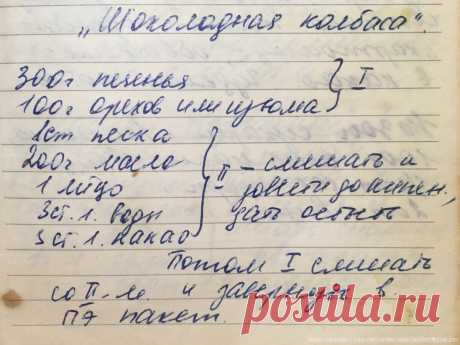 „Шоколадная колбаса".
300г печенья
100г орехов или изюма } I
1ст песка
200г масло
1 яйцо
3 ст. л. воды
3 ст. л. какао
} II – смешать и
довести до кипен.,
дать остыть
Потом I смешать
со II-м. и завернуть в
пэ пакет.
postila.ru